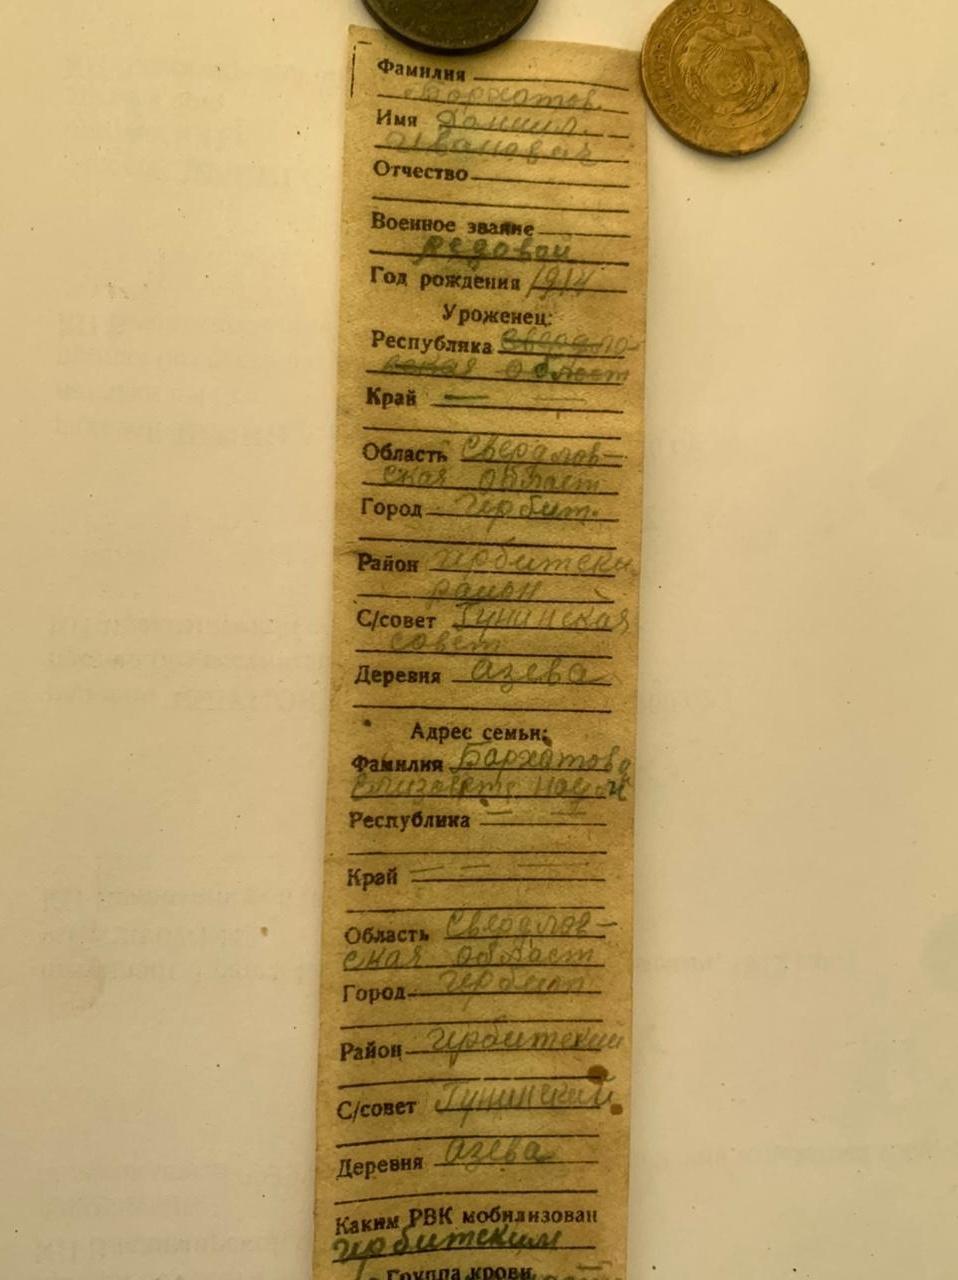 Фамилия
Бархатов
Имя Даниил
Иванович
Отчество
Военное звание
редовой
Год рождения 1914
Уроженец:
Республика Свердло-
вская област
Край —
Область Свердлов-
ская област
Город Ирбит.
Район Ирбитски
район
С/совет Гунинская
совет
Деревня Азева
Адрес семьи:
Фамилия Бархатова
Елизавета
Республика
Край
Область Свердлов-
ская област
Город Ирбит
Район Ирбитский
С/совет Гунинский
Деревня Азева
Каким РВК мобилизован
Ирбитским
Группа крови